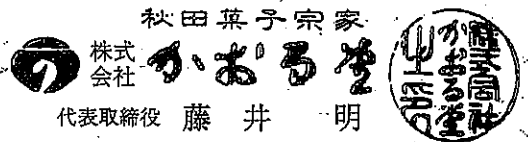 秋田菓子宗家
株式会社 かおる堂
代表取締役 藤井 明